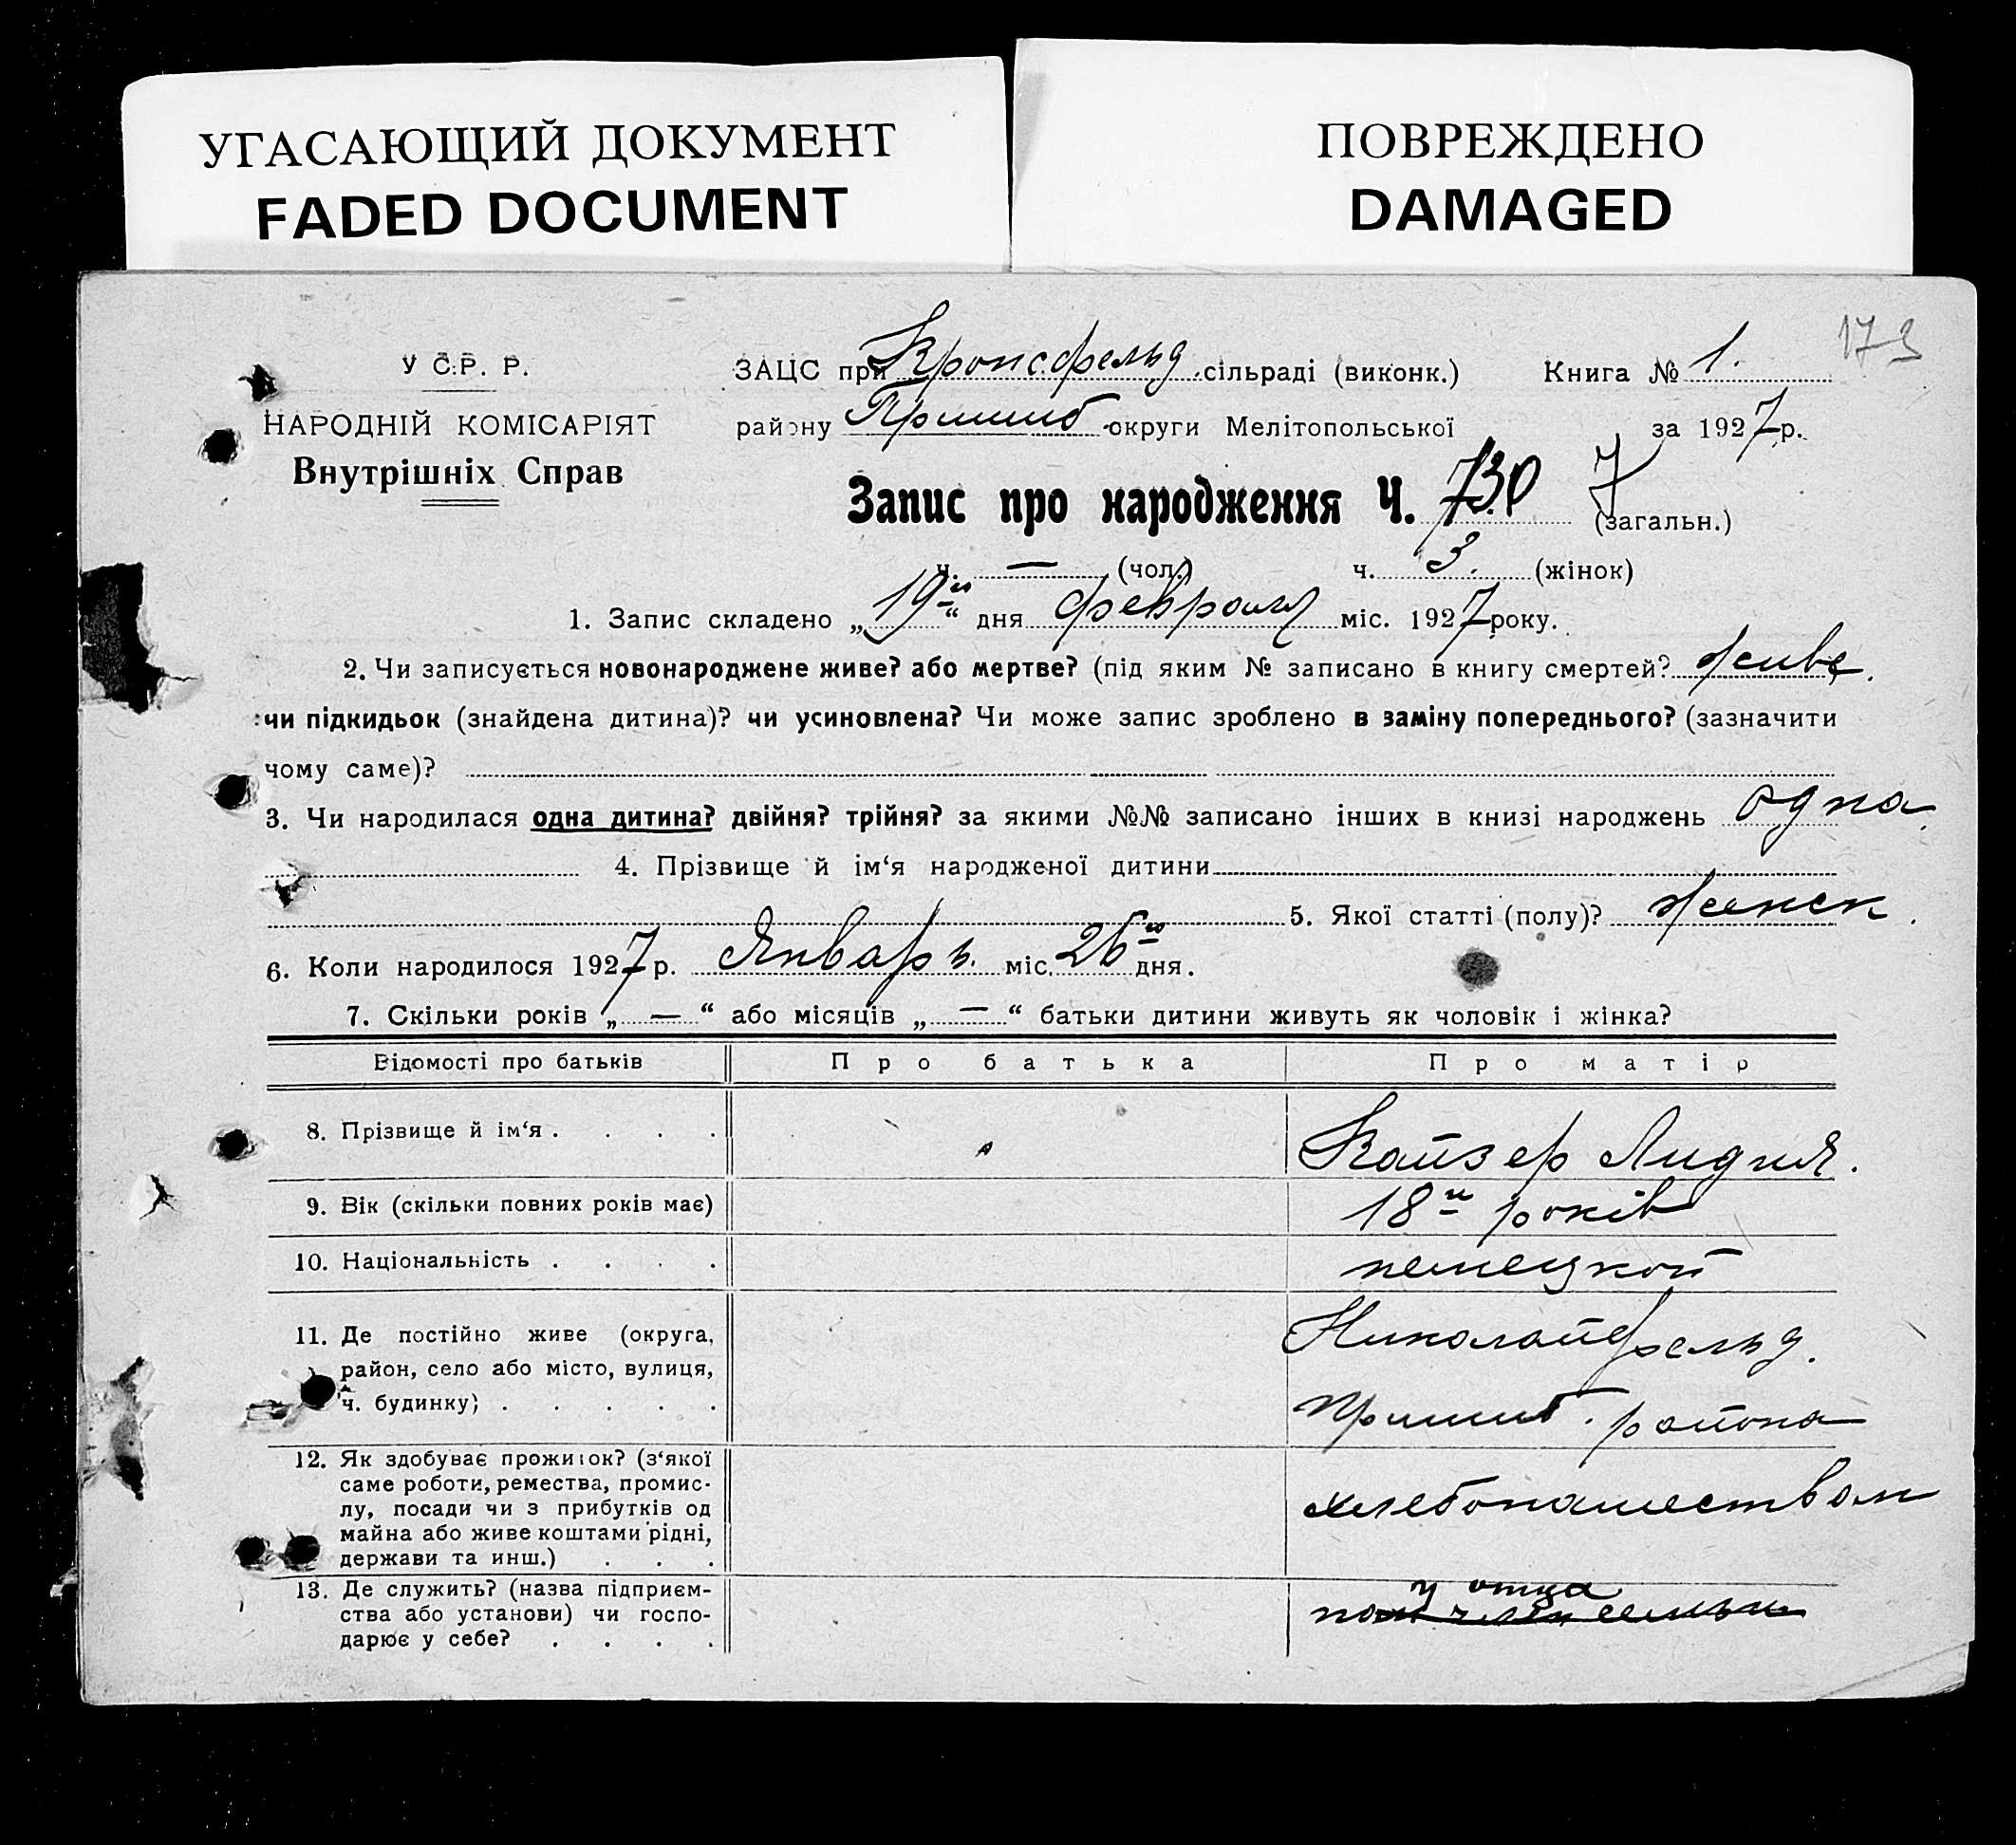 УГАСАЮЩИЙ ДОКУМЕНТ
FADED DOCUMENT
ПОВРЕЖДЕНО
DAMAGED
173
У С.Р. Р.
НАРОДНІЙ КОМІСАРІЯТ
Внутрішніх Справ
ЗАЦС при Кронсфельд сільраді (виконк.) Книга № 1.
району Пришиб округи Мелітопольської за 1927 р.
Запис про народження Ч. 730 7 (загальн.)
ч. — (чол.) ч. 3. (жінок)
1. Запис складено „19го“ дня февраля міс. 1927 року.
2. Чи записується новонароджене живе? або мертве? (під яким № записано в книгу смертей? живе.
чи підкидьок (знайдена дитина)? чи усиновлена? Чи може запис зроблено в заміну попереднього? (зазначити
чому саме)?
3. Чи народилася одна дитина? двійня? трійня? за якими №№ записано інших в книзі народжень одна.
4. Прізвище й ім‘я народженої дитини
5. Якої статті (полу)? женск.
6. Коли народилося 1927 р. Январь. міс. 26го дня.
7. Скільки років „—“ або місяців „—“ батьки дитини живуть як чоловік і жінка?
Відомості про батьків Про батька Про матір
8. Прізвище й ім‘я . . . . Кайзер Лидия.
9. Вік (скільки повних років має) 18и років
10. Національність . . . . немецкой
11. Де постійно живе (округа, Николайфельд.
район, село або місто, вулиця,
ч. будинку) . . . . . Пришиб. района
12. Як здобуває прожиток? (з‘якої
саме роботи, ремества, промис-
лу, посади чи з прибутків од хлебопашеством
майна або живе коштами рідні,
держави та инш.) . . .
13. Де служить? (назва підприєм- у отца
ства або установи) чи госпо- семьи
дарює у себе? . . . .